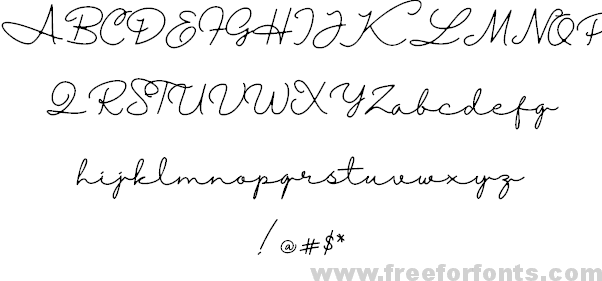 ABCDEFGHIJKLMNOP
QRSTUVWXYZabcdefg
hijklmnopqrstuvwxyz
!@#$*
www.freeforfonts.com